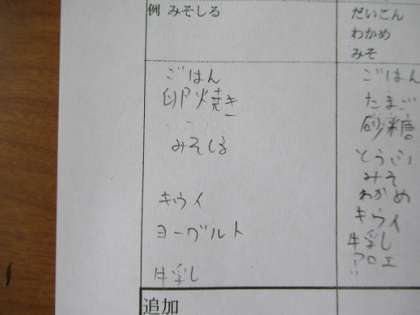 例 みそしる
だいこん
わかめ
みそ
ごはん
卵焼き
みそしる
キウイ
ヨーグルト
牛乳
ごはん
たまご
砂糖
とうふ
みそ
わかめ
キウイ
牛乳
アロエ
追加